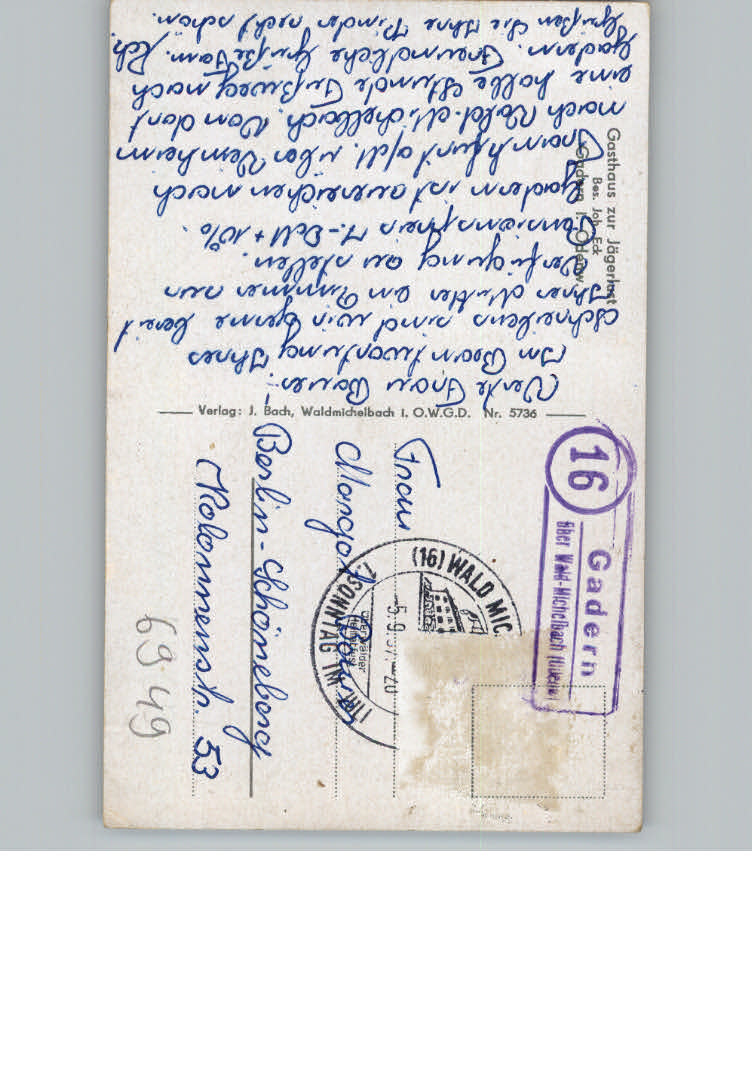 Gasthaus zur Jägerlust
Bes. Joh. Eck
Gadern i. Odenw.
Werte Frau Bauer,
Im Beantwortung Ihres
Schreibens sind wir gerne bereit
Ihrer Mutter ein Zimmer zur
Verfügung zu stellen.
Pensionspreis 7.- DM + 10%.
Gadern ist zu erreichen nach
Frankfurt a/M. über Weinheim
nach Wald-Michelbach. Von dort
eine halbe Stunde Fußweg nach
Gadern. Freundliche Grüße Fam. Eck.
Grüßen Sie Ihre Kinder recht schön.
Verlag: J. Bach, Waldmichelbach i. O.W.G.D. Nr. 5736
16
Gadern
über Wald-Michelbach
(16) WALD MIC
5.9.57.-20
SONNTAG
Frau
Margot Bauer
Berlin-Schöneberg
Kolonnenstr. 53
6949